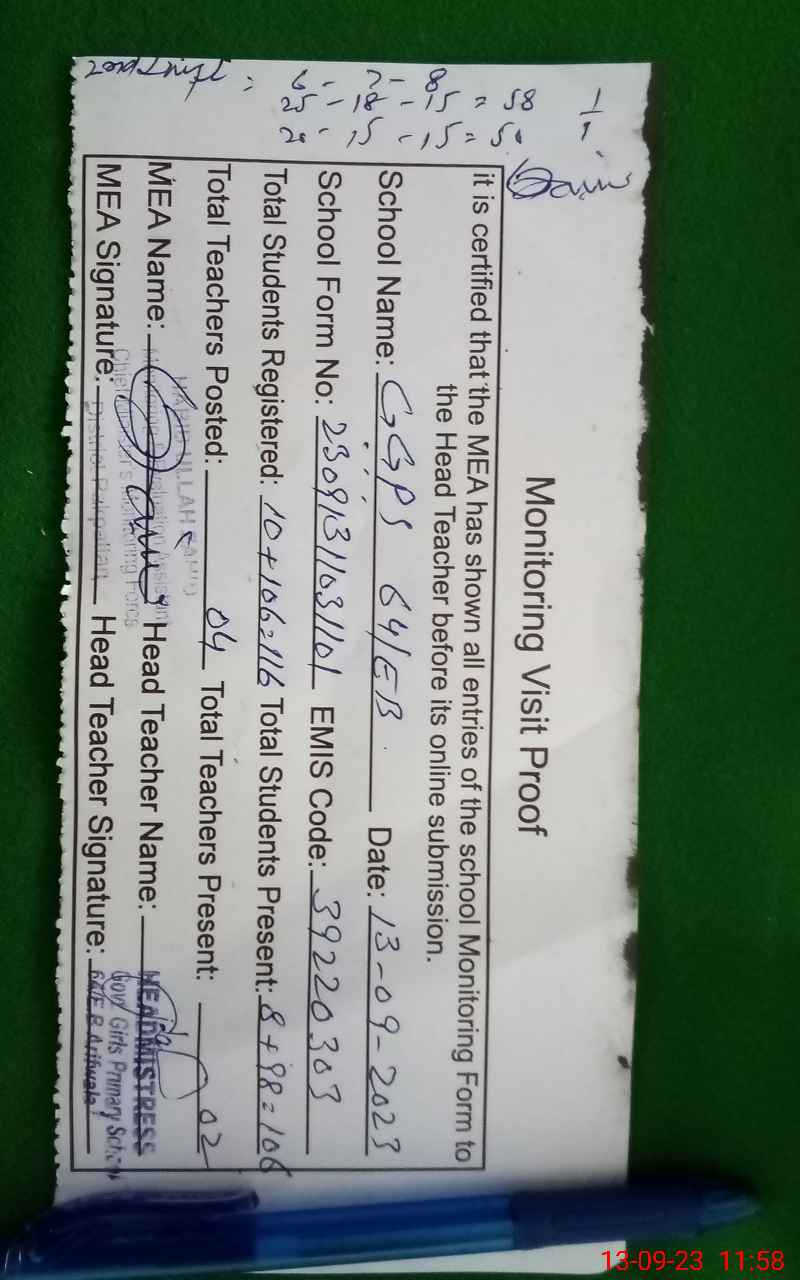 Monitoring Visit Proof
it is certified that the MEA has shown all entries of the school Monitoring Form to
the Head Teacher before its online submission.
School Name: GGPS 64/EB Date: 13-09-2023
School Form No: 23091311031101 EMIS Code: 39220303
Total Students Registered: 10+106=116 Total Students Present: 8+98=106
Total Teachers Posted: 04 Total Teachers Present: 02
MEA Name: Head Teacher Name:
MEA Signature: Head Teacher Signature:
HEADMISTRESS
Govt Girls Primary School
64/E.B Arifwala
Chief Minister's Monitoring Force
District Pakpattan
6 - 7 - 8
25 - 18 - 15 = 58
20 - 15 - 15 = 50
13-09-23 11:58